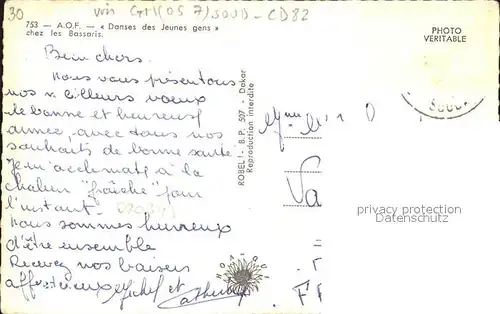 30
753 — A.O.F. — « Danses des Jeunes gens »
chez les Bassaris.
PHOTO
VERITABLE
Bien chers.
Nous vous présentons
nos meilleurs voeux
de bonne et heureuse
année, avec tous nos
souhaits de bonne santé
Je m'acclimate à la
chaleur "fraîche" pour
l'instant.
Nous sommes heureux
d'être ensemble
Recevez nos baisers
affectueux Michel et
ROBEL I - B.P. 507 - Dakar
Reproduction interdite
privacy protection
Datenschutz